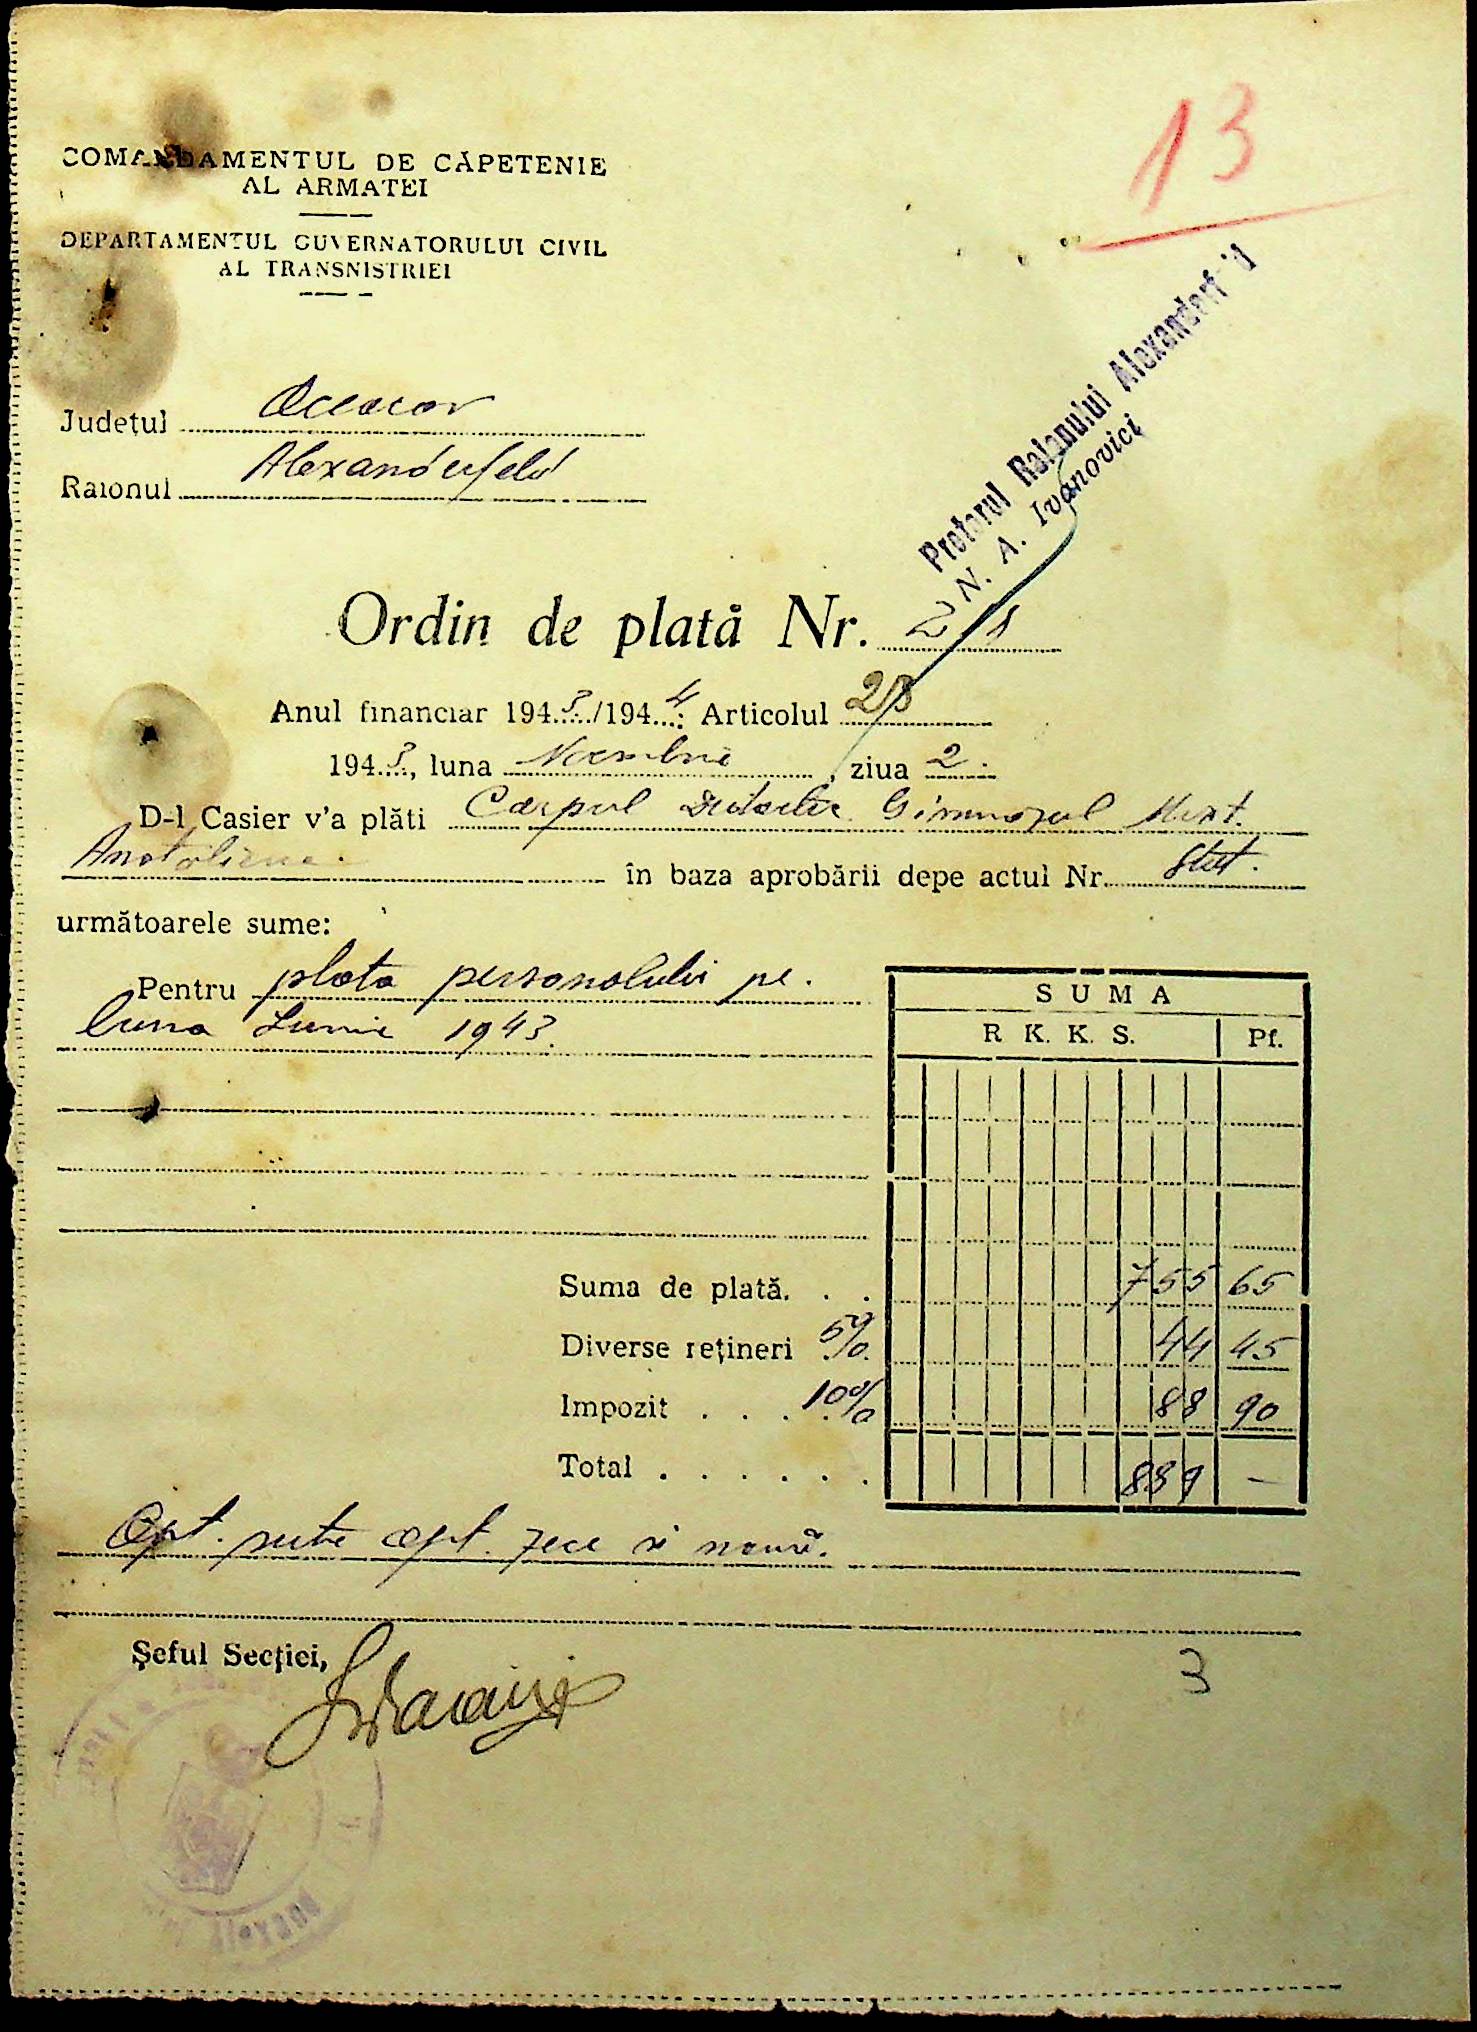 13
COMANDAMENTUL DE CĂPETENIE
AL ARMATEI
DEPARTAMENTUL GUVERNATORULUI CIVIL
AL TRANSNISTRIEI
Pretorul Raionului Alexanderf
N. A. Ivanovici
Județul Oceacov
Raionul Alexanderfeld
Ordin de plată Nr.
Anul financiar 1943/1944: Articolul
1943, luna Noembrie, ziua 2.
D-l Casier v'a plăti Corpul Didactic Gimnazul Mixt.
în baza aprobării depe actul Nr. Stat.
următoarele sume:
Pentru plata personalului pe.
luna Iunie 1943.
SUMA
R K. K. S. Pf.
Suma de plată. . . 755 65
Diverse rețineri 5% 44 45
Impozit . . . . 10% 88 90
Total . . . . . . 889 —
Opt. sute opt. zece si nouă.
Șeful Secției,
3